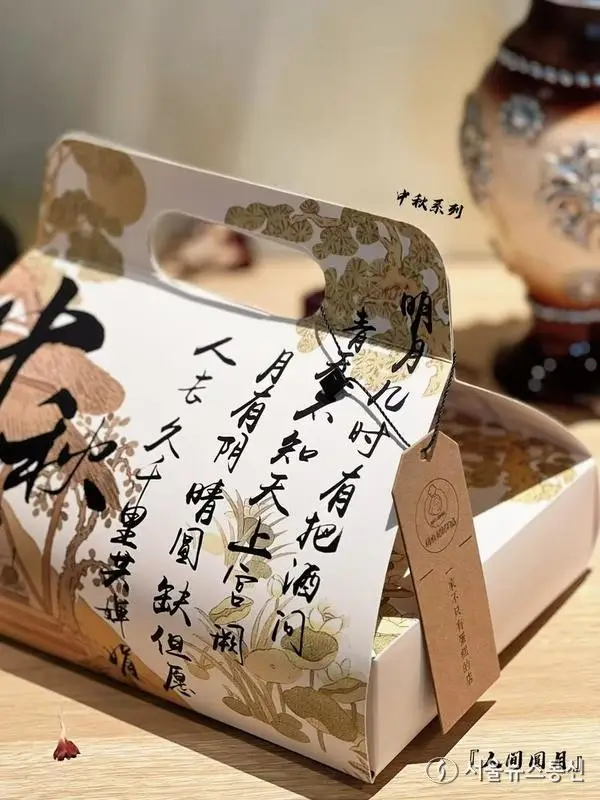 中秋系列
中秋
明月几时有把酒问
青天不知天上宫阙
月有阴晴圆缺但愿
人去久千里共婵娟
一家不只有蛋糕的店
『人间月』
서울뉴스통신